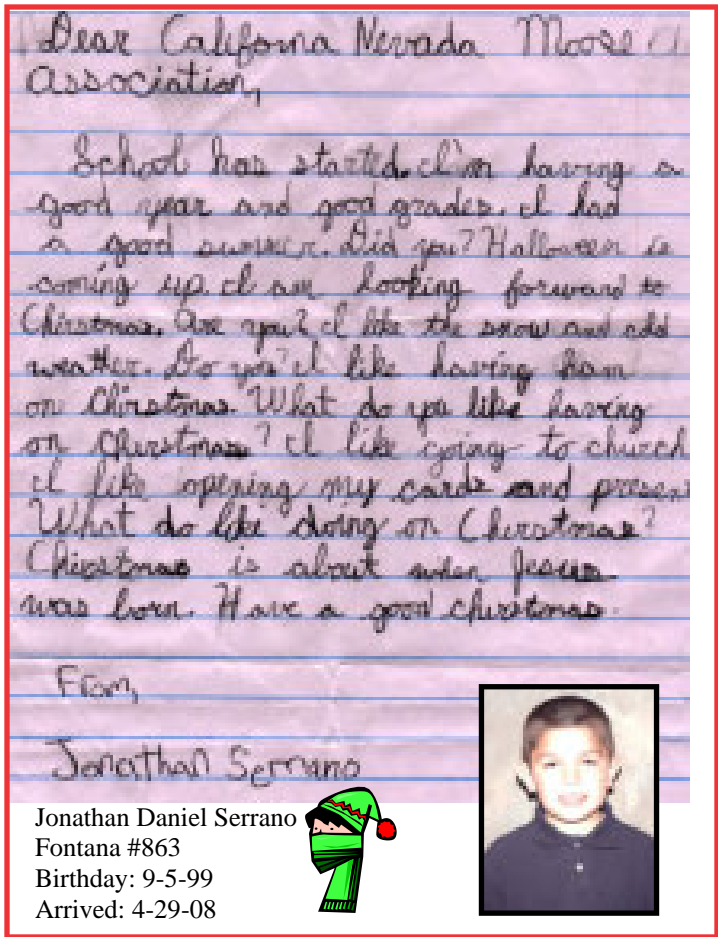 Dear California Nevada Moose
Association,
School has started. I'm having a
good year and good grades. I had
a good summer. Did you? Halloween is
coming up. I am looking forward to
Chirstmas. Are you? I like the snow and cold
weather. Do you? I like having ham
on Chirstmas. What do you like having
on Cherstmas? I like going to church
I like opening my cards and presen
What do like doing on Cherstmas?
Chirstmas is about when Jesus
was born. Have a good cherstmas.
From,
Jonathan Serrano
Jonathan Daniel Serrano
Fontana #863
Birthday: 9-5-99
Arrived: 4-29-08